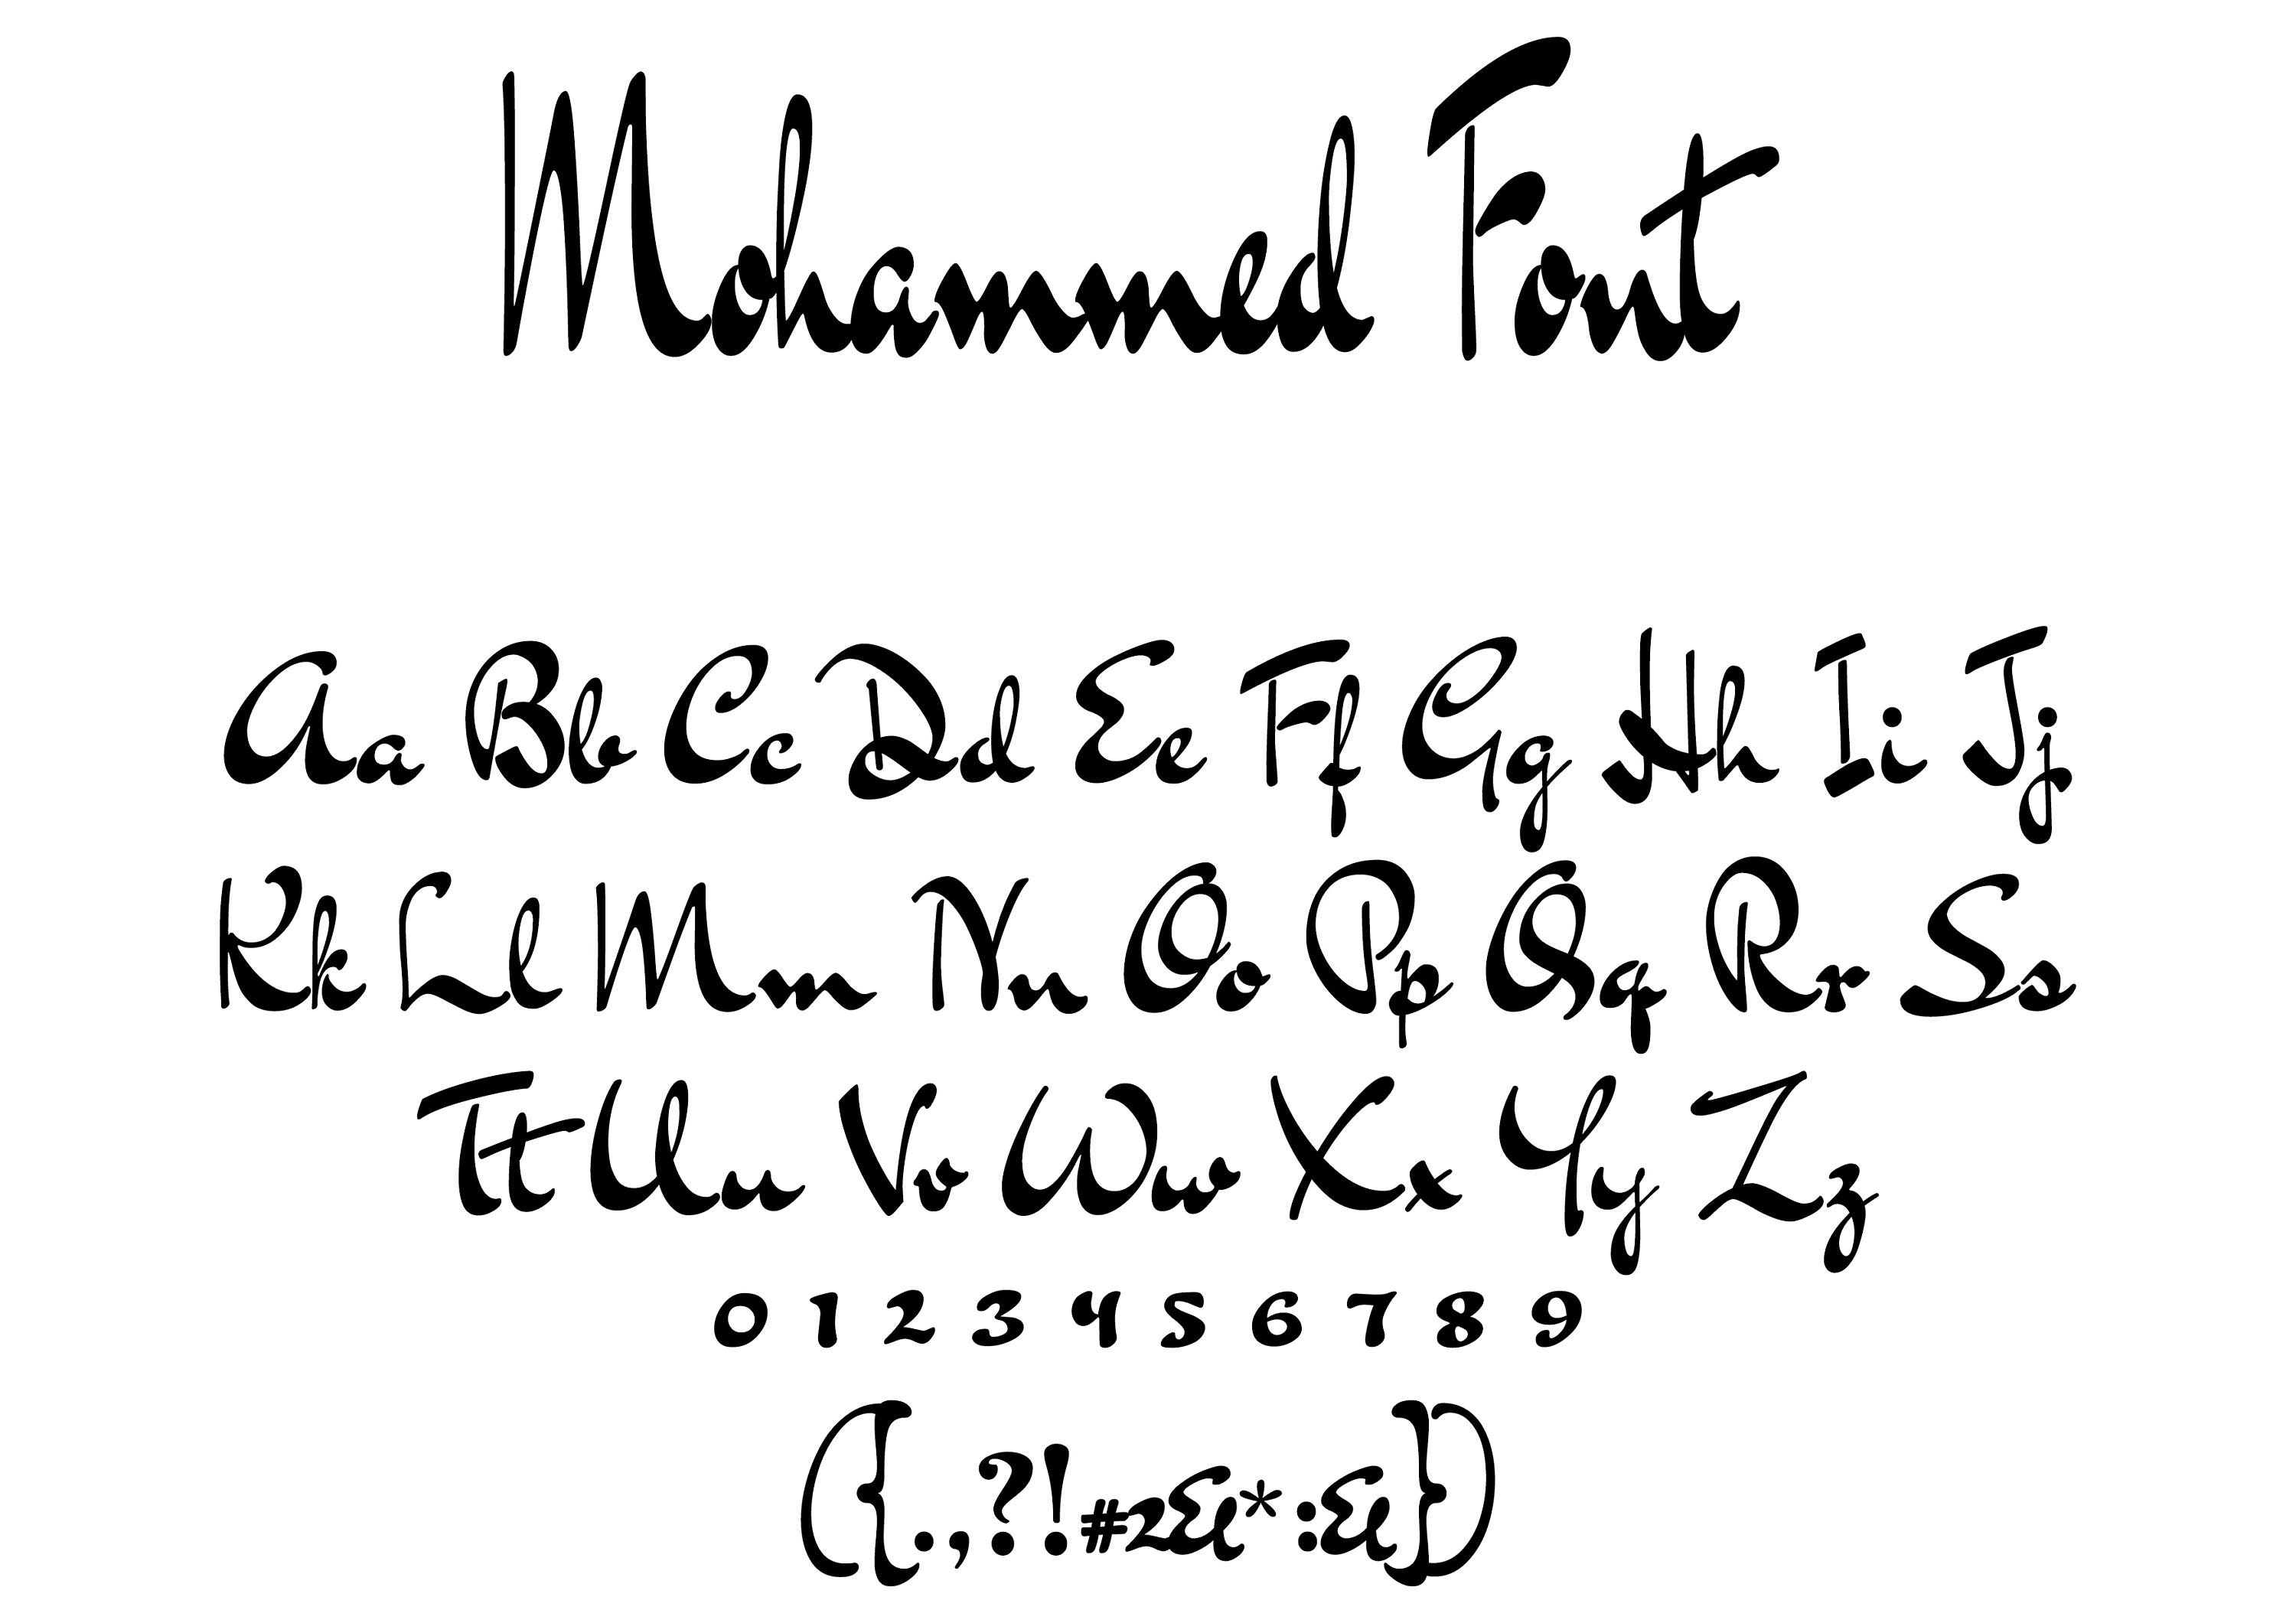 Mohammed Font
Aa Bb Cc Dd Ee Ff Gg Hh Ii Jj
Kk Ll Mm Nn Oo Pp Qq Rr Ss
Tt Uu Vv Ww Xx Yy Zz
0 1 2 3 4 5 6 7 8 9
({.,?!#2&*:&})